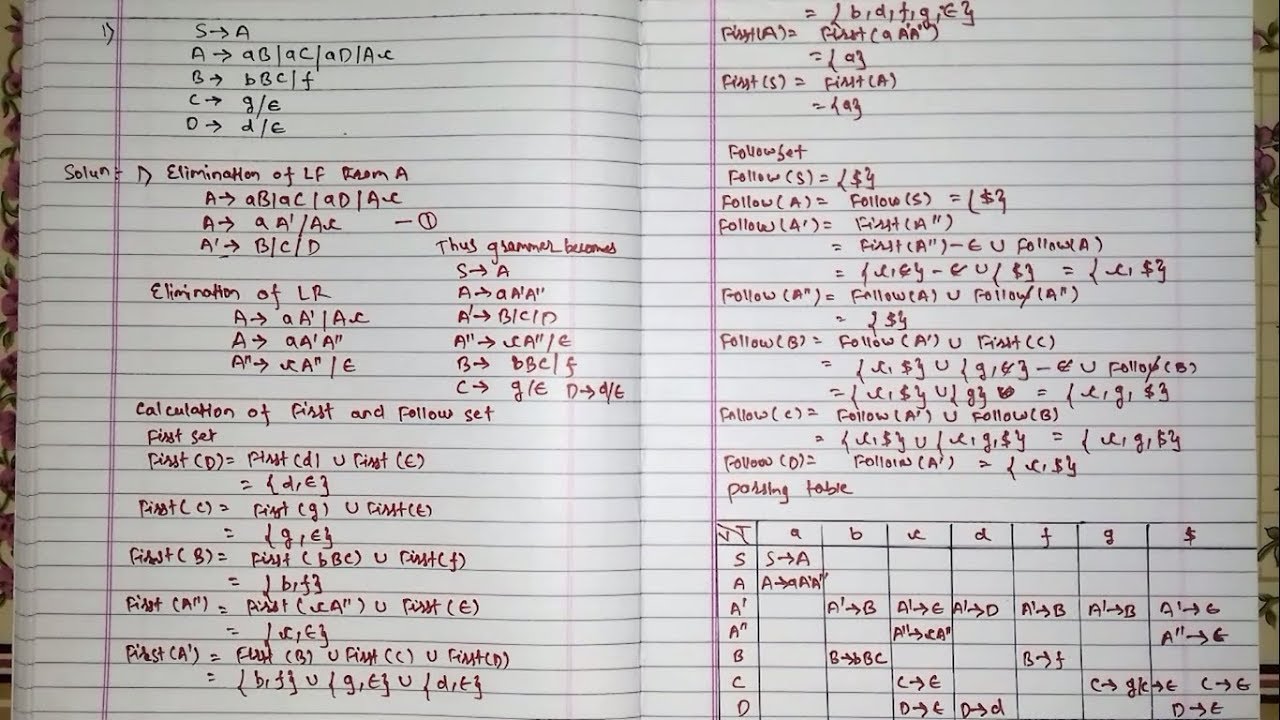 1) S→A
A→ aB|aC|aD|Ac
B→ bBC|f
C→ g/ε
D→ d/ε
Solun:- 1) Elimination of LF from A
A→ aB|aC|aD|Ac
A→ aA'/Ac —①
A'→ B|C|D
Elimination of LR
A→ aA'|Ac
A→ aA'A"
A"→ cA"/ε
Thus grammer becomes
S→A
A→aA'A"
A'→B|C|D
A"→cA"/ε
B→ bBC|f
C→ g/ε D→d/ε
Calculation of First and Follow set
First set
First(D)= First(d) ∪ First(ε)
= {d,ε}
First(C)= First(g) ∪ First(ε)
= {g,ε}
First(B)= First(bBC) ∪ First(f)
= {b,f}
First(A")= First(cA") ∪ First(ε)
= {c,ε}
First(A')= First(B) ∪ First(C) ∪ First(D)
= {b,f} ∪ {g,ε} ∪ {d,ε}
= {b,d,f,g,ε}
First(A)= First(aA'A")
= {a}
First(S)= First(A)
= {a}
Followset
Follow(S)= {$}
Follow(A)= Follow(S) = {$}
Follow(A')= First(A")
= First(A")-ε ∪ Follow(A)
= {c,ε}-ε ∪ {$} = {c,$}
Follow(A")= Follow(A) ∪ Follow(A")
= {$}
Follow(B)= Follow(A') ∪ First(C)
= {c,$} ∪ {g,ε}-ε ∪ Follow(B)
= {c,$} ∪ {g} = {c,g,$}
Follow(C)= Follow(A') ∪ Follow(B)
= {c,$} ∪ {c,g,$} = {c,g,$}
Follow(D)= Follow(A') = {c,$}
parsing table
V/T a b c d f g $
S S→A
A A→aA'A"
A' A'→B A'→ε A'→D A'→B A'→B A'→ε
A" A"→cA" A"→ε
B B→bBC B→f
C C→ε C→g/C→ε C→ε
D D→ε D→d D→ε